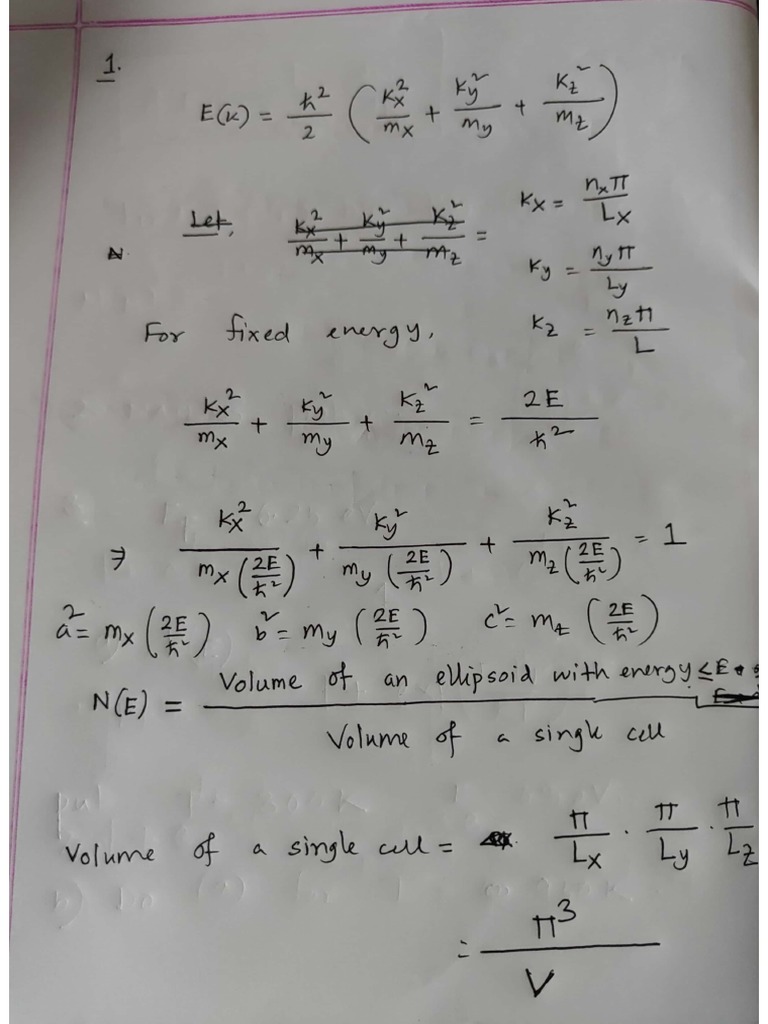 1.
E(k) = ħ²/2 ( kx²/mx + ky²/my + kz²/mz )
Let, kx²/mx + ky²/my + kz²/mz = kx = nxπ/Lx
N. ky = nyπ/Ly
For fixed energy, kz = nzπ/L
kx²/mx + ky²/my + kz²/mz = 2E/ħ²
⇒ kx²/(mx(2E/ħ²)) + ky²/(my(2E/ħ²)) + kz²/(mz(2E/ħ²)) = 1
a² = mx(2E/ħ²) b² = my(2E/ħ²) c² = mz(2E/ħ²)
N(E) = Volume of an ellipsoid with energy ≤ E
Volume of a single cell
Volume of a single cell = π/Lx · π/Ly · π/Lz
= π³/V